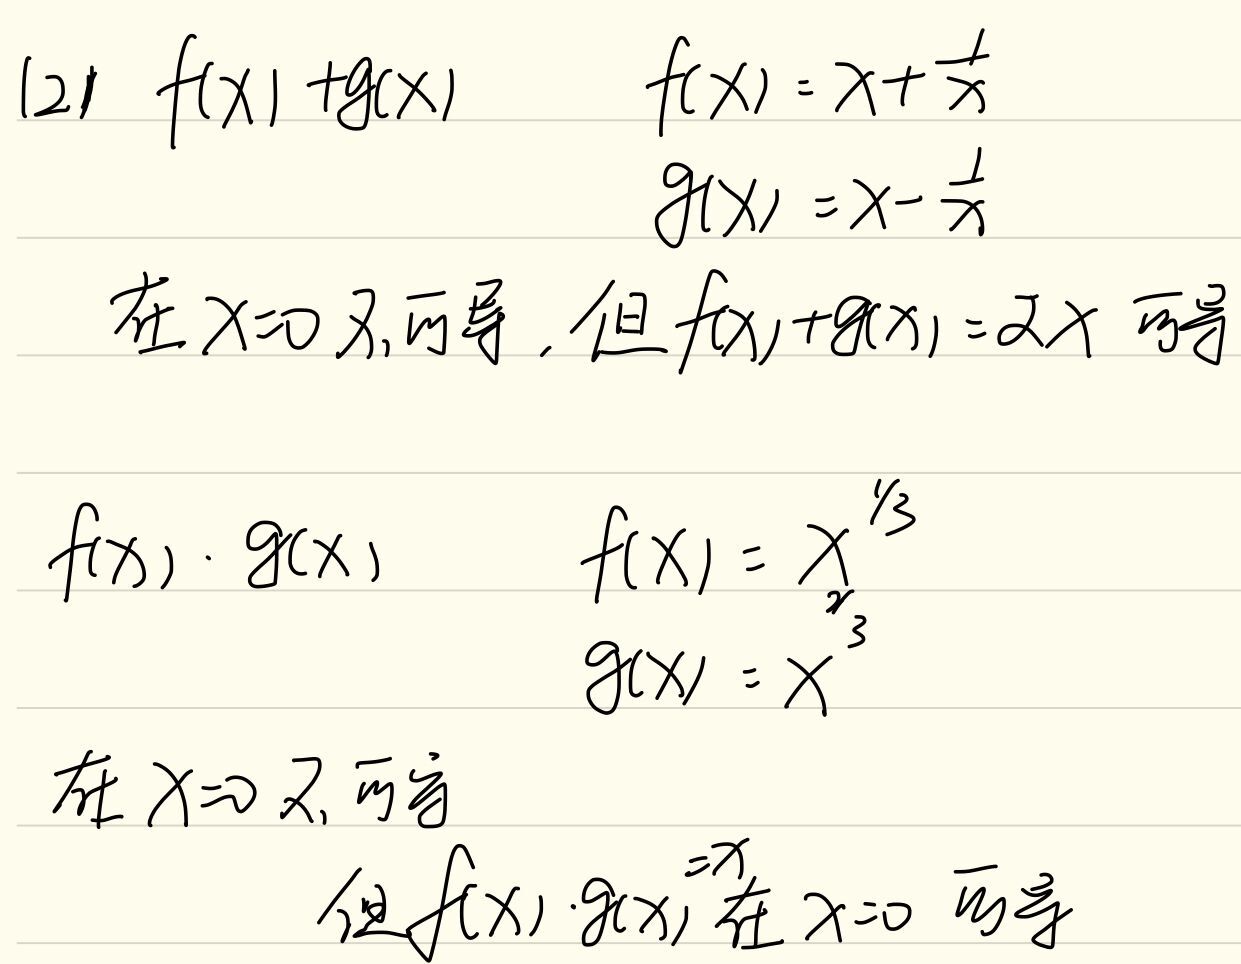 (2) f(x)+g(x) f(x)=x+1/x
g(x)=x-1/x
在x=0不可导,但f(x)+g(x)=2x可导
f(x)·g(x) f(x)=x^1/3
g(x)=x^2/3
在x=0不可导
但f(x)·g(x)=x在x=0可导